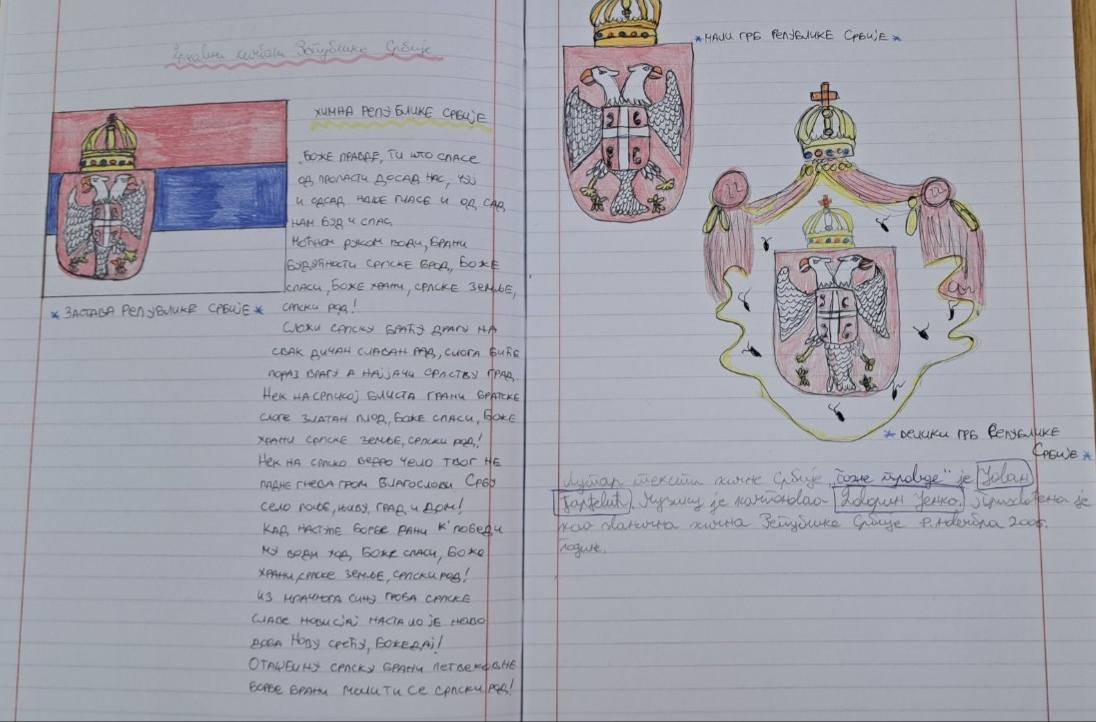 Државни симболи Републике Србије
ХИМНА РЕПУБЛИКЕ СРБИЈЕ
„БОЖЕ ПРАВДЕ, ТИ ШТО СПАСЕ
ОД ПРОПАСТИ ДОСАД НАС, ЧУЈ
И ОДСАД НАШЕ ГЛАСЕ И ОД САД
НАМ БУДИ СПАС.
МОЋНОМ РУКОМ ВОДИ, БРАНИ
БУДУЋНОСТИ СРПСКЕ БРОД, БОЖЕ
СПАСИ, БОЖЕ ХРАНИ, СРПСКЕ ЗЕМЉЕ,
СРПСКИ РОД!
СЛОЖИ СРПСКУ БРАЋУ ДРАГУ НА
СВАК ДИЧАН СЛАВАН РАД, СЛОГА БИЋЕ
ПОРАЗ ВРАГУ А НАЈЈАЧИ СРПСТВУ ГРАД.
НЕК НА СРПСКОЈ БЛИСТА ГРАНИ БРАТСКЕ
СЛОГЕ ЗЛАТАН ПЛОД, БОЖЕ СПАСИ, БОЖЕ
ХРАНИ СРПСКЕ ЗЕМЉЕ, СРПСКИ РОД!
НЕК НА СРПСКО ВЕДРО ЧЕЛО ТВОГ НЕ
ПАДНЕ ГНЕВА ГРОМ БЛАГОСЛОВИ СРБУ
СЕЛО ПОЉЕ, ЊИВУ, ГРАД И ДОМ!
КАД НАСТУПЕ БОРБЕ ДАНИ К' ПОБЕДИ
МУ ВОДИ ХОД, БОЖЕ СПАСИ, БОЖЕ
ХРАНИ, СРПСКЕ ЗЕМЉЕ, СРПСКИ РОД!
ИЗ МРАЧНОГА СИНУ ГРОБА СРПСКЕ
СЛАВЕ НОВИ СЈАЈ НАСТАЛО ЈЕ НОВО
ДОБА НОВУ СРЕЋУ, БОЖЕ ДАЈ!
ОТАЏБИНУ СРПСКУ БРАНИ ПЕТВЕКОВНЕ
БОРБЕ БРАНИ МОЛИ ТИ СЕ СРПСКИ РОД!
* ЗАСТАВА РЕПУБЛИКЕ СРБИЈЕ *
* МАЛИ ГРБ РЕПУБЛИКЕ СРБИЈЕ *
* ВЕЛИКИ ГРБ РЕПУБЛИКЕ
СРБИЈЕ *
Аутор текста химне Србије „Боже правде" је Јован
Ђорђевић. Музику је компоновао Даворин Јенко. је
као званична химна Републике Србије 8. новембра
године.